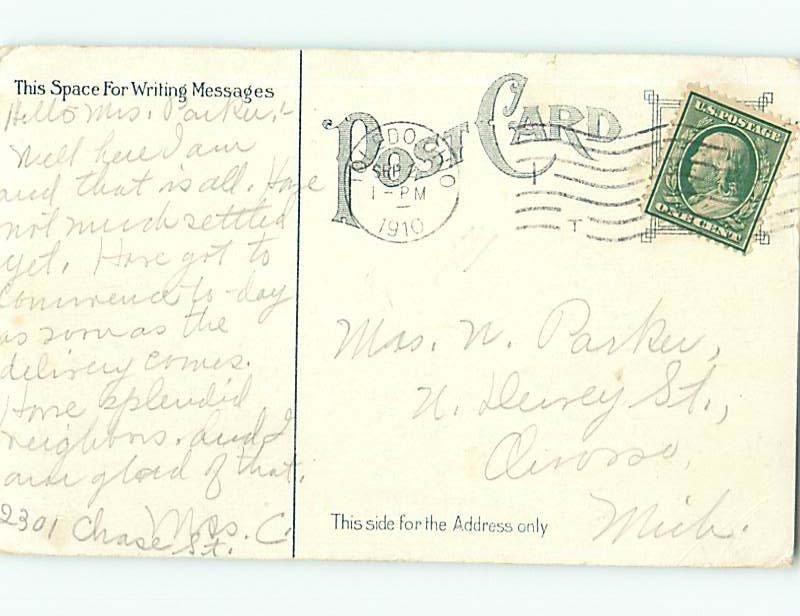 This Space For Writing Messages
Hello Mrs. Parker:-
Well here I am
and that is all. Have
not much settled
yet. Have got to
commence to-day
as soon as the
delivery comes.
Have splendid
neighbors. And I
am glad of that.
Mrs. C.
2301 Chase St.
POST CARD
TOLEDO O
SEP
1-PM
1910
U.S. POSTAGE
ONE CENT
Mrs. N. Parker,
N. Dewey St.,
Owosso,
Mich.
This side for the Address only